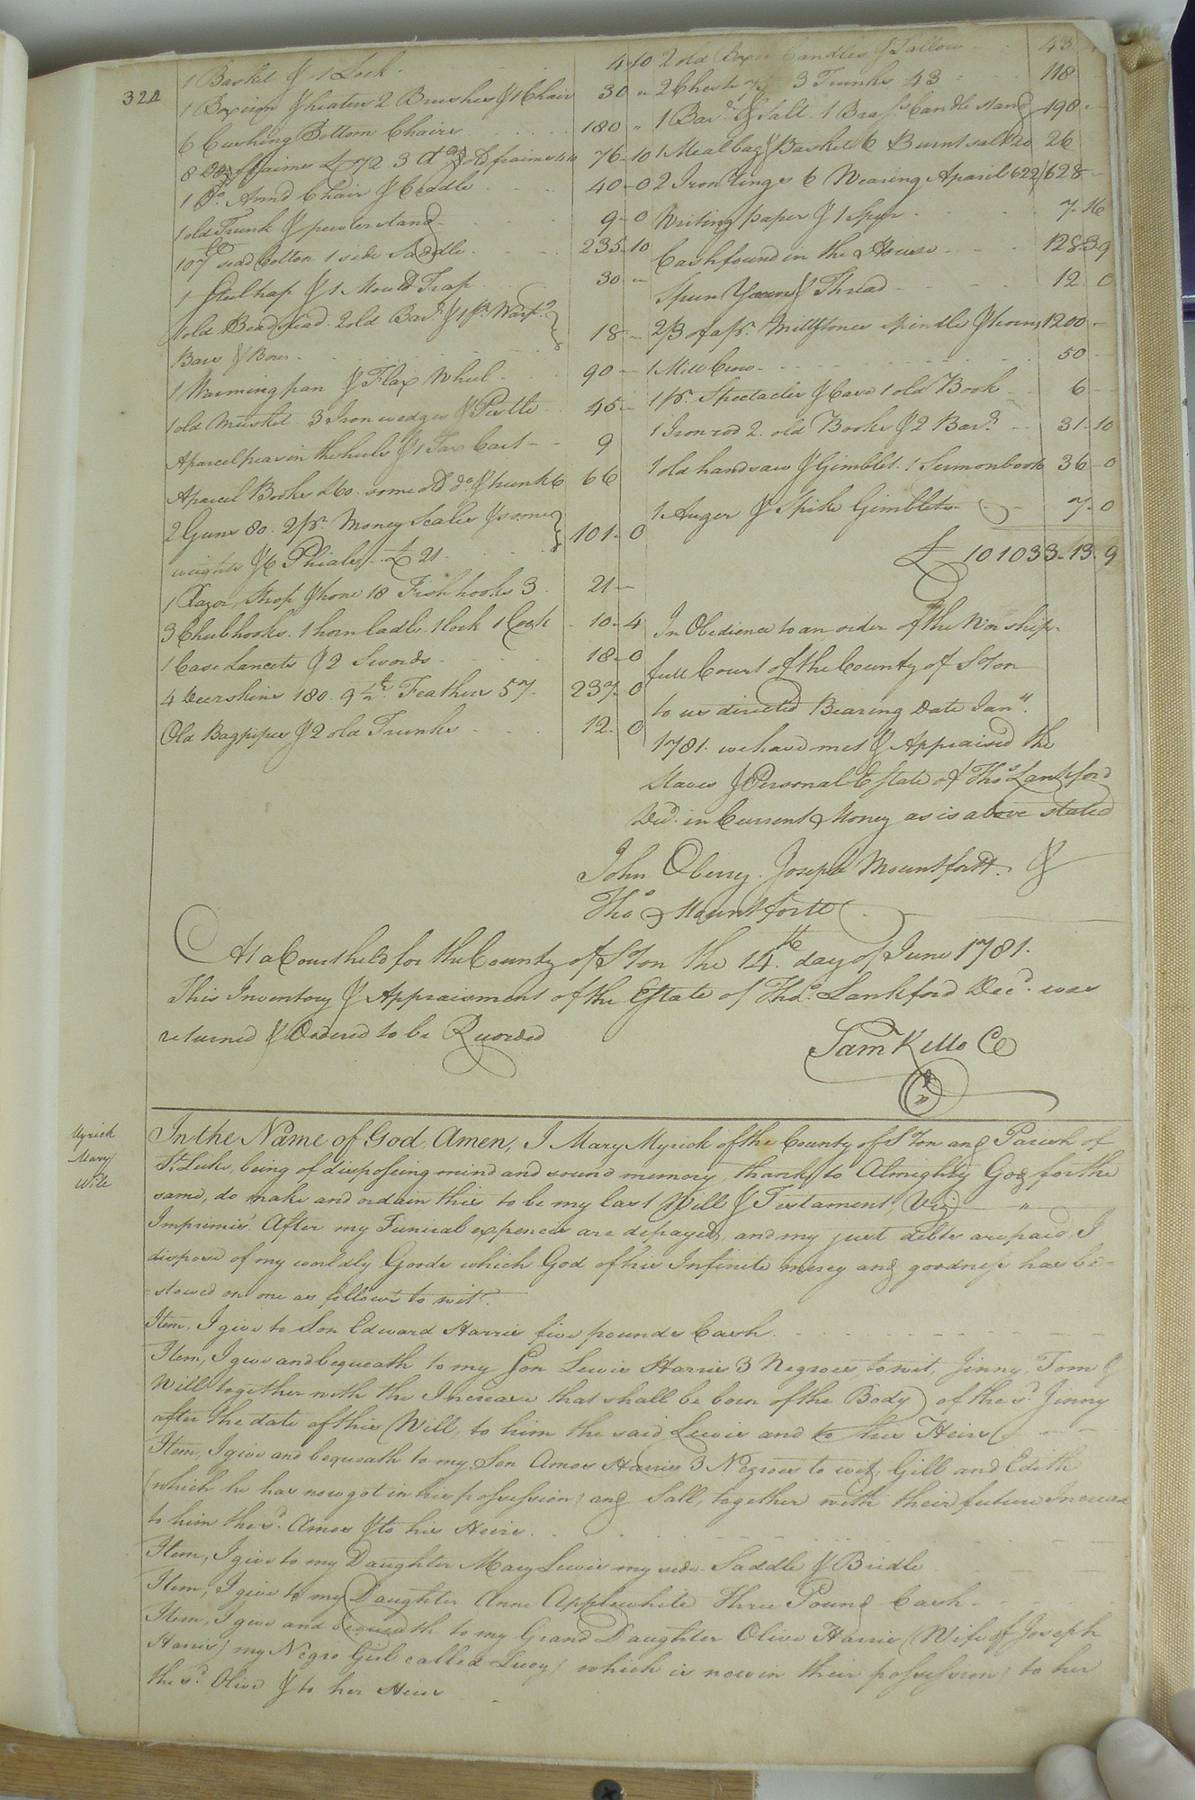 324
1 Basket & 1 Lock 4-10
1 Box iron & heaters 2 Brushes & 1 Chair 30 "
6 Cushing Bottom Chairs 180 "
8 Doz 72. 3 do old 76-10
1 Do. Armd Chair & Cradle 40-0
1 old Trunk & pewter stand 9-0
107 lb seed Cotton 1 side Saddle 235-10
1 Steel trap & 1 Mould Trap 30 -
1 old Beadstead. 2 old Bars. & 1 pr. Warpg.
Bars & Box 18 -
1 Warming pan & Flax Wheel 90 -
1 old Musket 3 Iron wedges & Pestle 45 -
A parcel peas in the hulls & 1 Tar Cart 9
A parcel Books £60. some old do. & trunk 6 66
2 Guns 80. 2 pr. Money Scales & some
weights & 6 Phials £21 101-0
1 Razor, Strop & hone 18 Fish hooks 3 21 -
3 Chub hooks. 1 horn ladle. 1 lock 1 Cock 10-4
1 Case Lancets & 2 Swords 18-0
4 Deerskins 180. 9 1/2 lb. Feathers 57 237-0
Old Bagpipes & 2 old Trunks 12-0
2 old Boxes Candles & Tallow 43
2 Chests 3 Trunks 43 118
1 Barl. & Salt. 1 Brass Candlestand 198 -
1 Meal bag & Basket 6 Burnt 20 26
2 Iron 6 Wearing Aparil 622 628 -
Writing paper & 1 Spur 7-16
Cash found in the House 1283-9
Spun Yarn & Thread 12 0
2/3 of a pr. Millstones spindle & horns 1200 -
1 Mill Crow 50 -
1 pr. Spectacles & Case 1 old Book 6 -
1 Iron rod 2 old Books & 2 Bars. 31-10
1 old hand saw & Gimblet. 1 Sermon book 36-0
1 Auger & Spike Gimblets 7-0
£ 101033-13-9
In Obedience to an order of the Worship-
full Court of the County of S.ton
to us directed Bearing Date Jany.
1781. we have met & Appraised the
Slaves & Personal Estate of Thos. Lankford
Decd. in Current Money as is above stated
John Oberry. Joseph Mountfortt. &
Thos. Mountfortt
At a Court held for the County of S.ton the 14.th day of June 1781.
This Inventory & Appraisment of the Estate of Thos. Lankford Decd. was
returned & Ordered to be Recorded
Sam Kello CC
Myrick
Mary
Will
In the Name of God, Amen, I Mary Myrick of the County of S.ton and Parish of
St. Luke, being of disposeing mind and sound memory, thanks to Almighty God for the
same, do make and ordain this to be my last Will & Testament, Viz.
Imprimis. After my Funeral expences are defrayed, and my just debts are paid, I
dispose of my worldly Goods which God of his Infinite mercy and goodness has be-
=stowed on me as follows to wit.
Item, I give to Son Edward Harris five pounds Cash.
Item, I give and bequeath to my Son Lewis Harris 3 Negroes to wit, Jinny, Tom &
Will together with the Increase that shall be born of the Body of the sd. Jinny
after the date of this Will, to him the said Lewis and to his Heirs
Item, I give and bequeath to my Son Amos Harris 3 Negroes to wit, Gill and Edith
(which he has now got in his possession) and Sall, together with their future Increase
to him the sd. Amos & to his Heirs.
Item, I give to my Daughter Mary Lewis my side Saddle & Bridle
Item, I give to my Daughter Anne Applewhite Three Pound Cash.
Item, I give and bequeath to my Grand Daughter Olive Harris (Wife of Joseph
Harris) my Negro Girl called Lucy (which is now in their possession) to her
the sd. Olive & to her Heirs